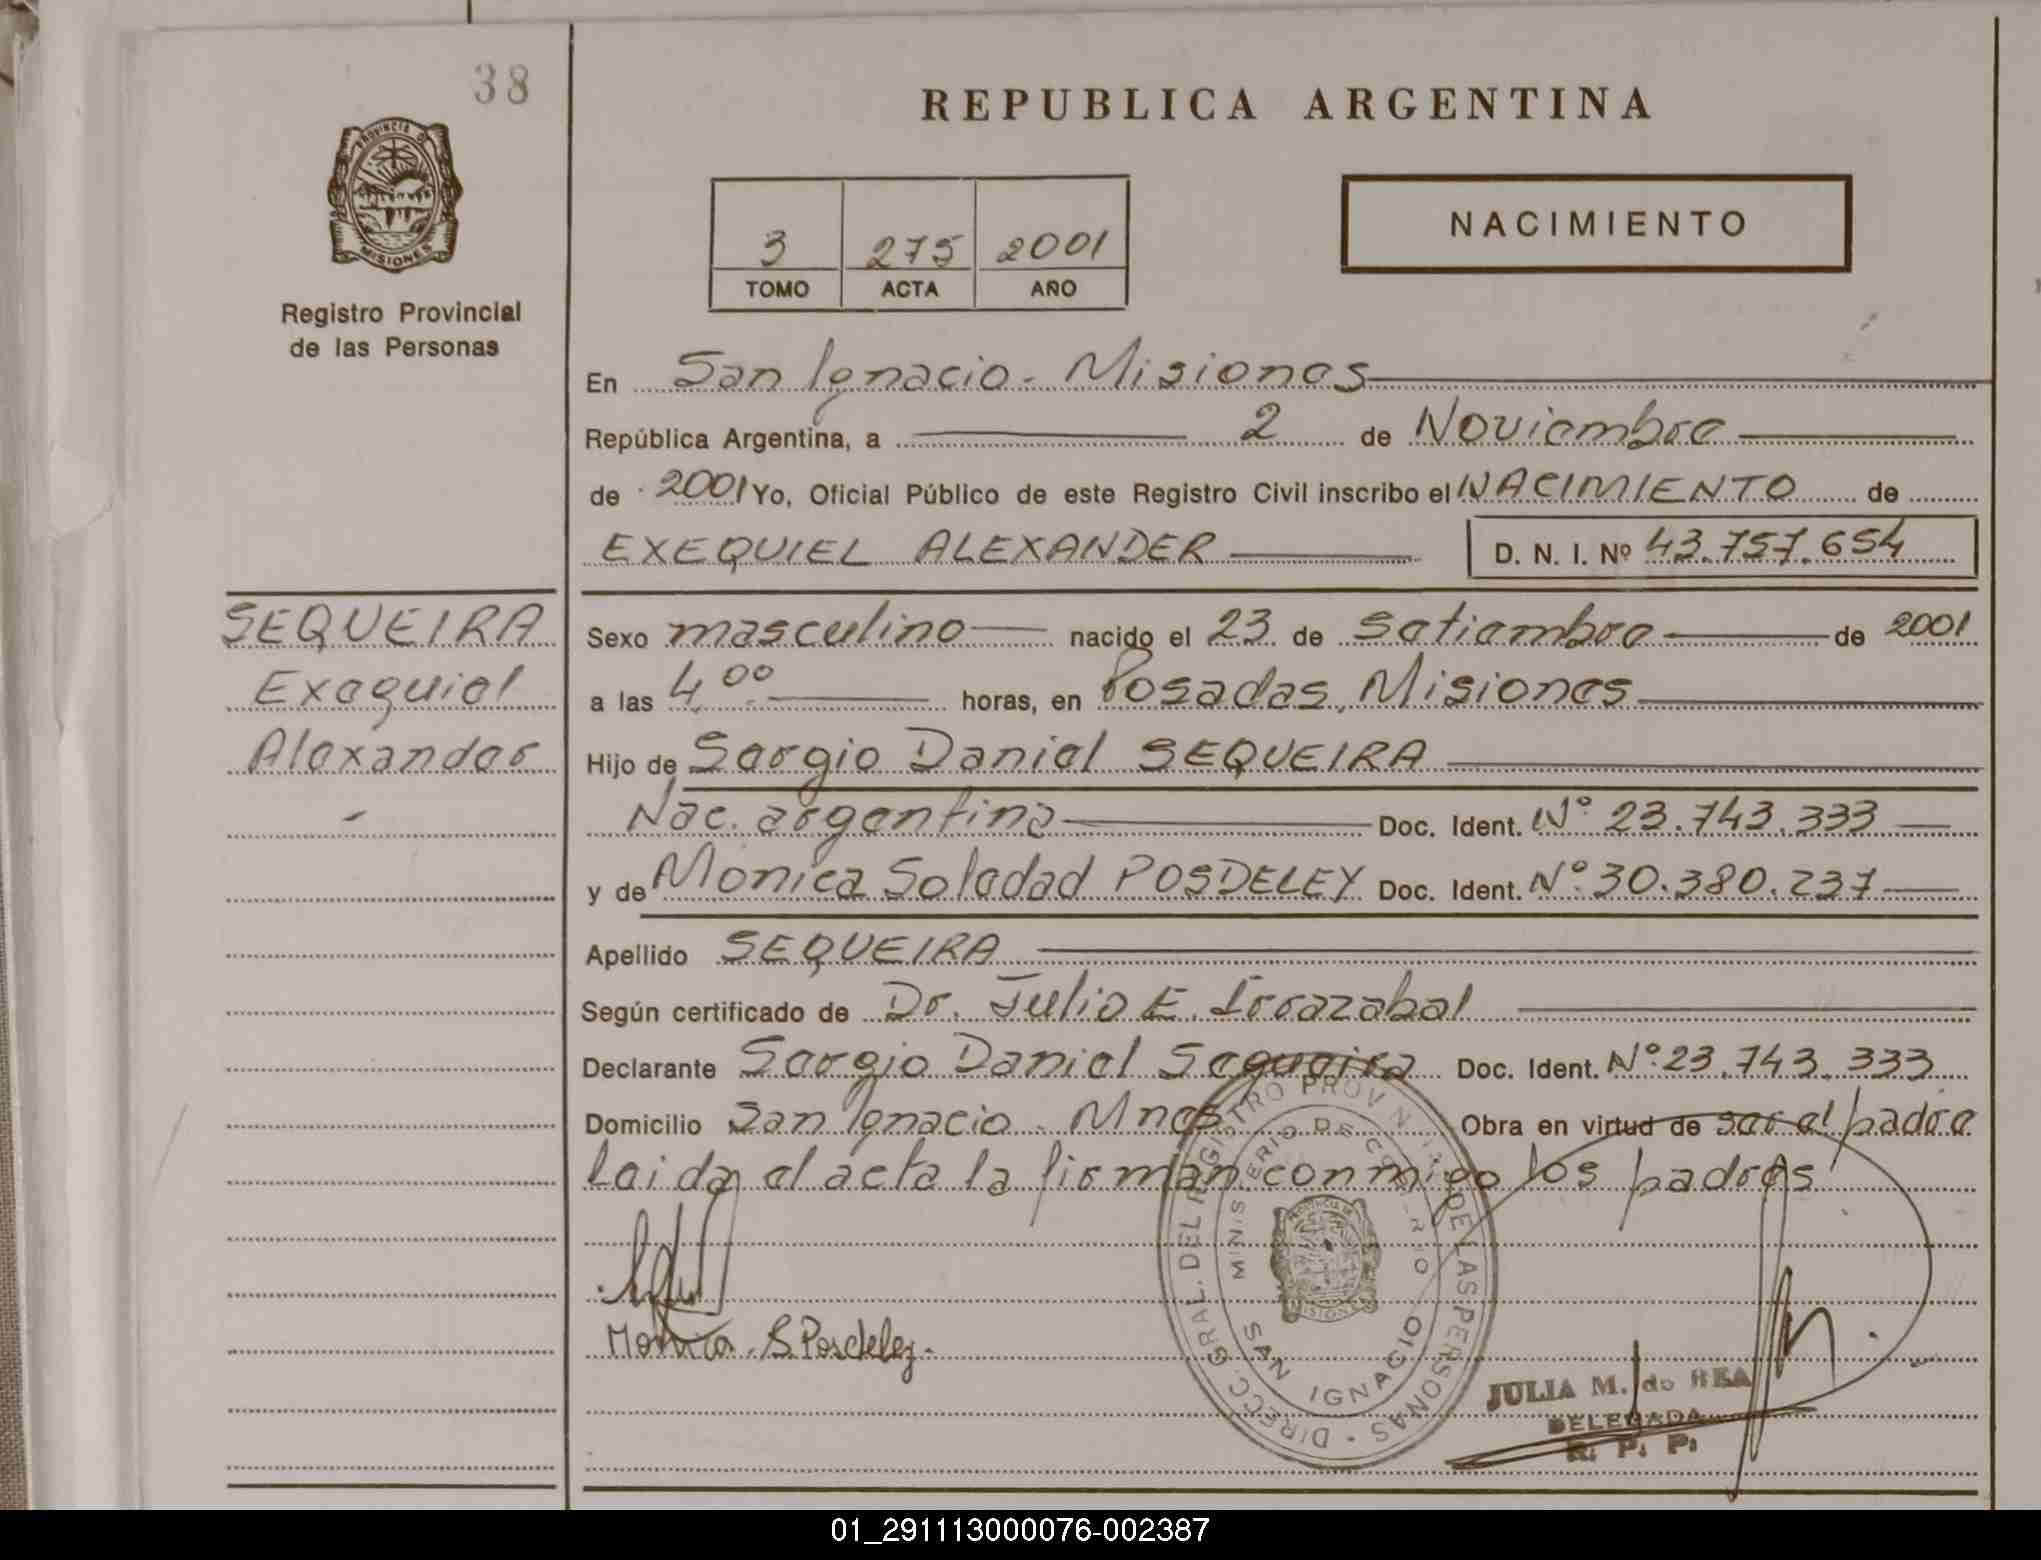 38
REPUBLICA ARGENTINA
PROVINCIA DE
MISIONES
Registro Provincial
de las Personas
3 275 2001
TOMO ACTA AÑO
NACIMIENTO
En San Ignacio - Misiones
República Argentina, a 2 de Noviembre
de 2001 Yo, Oficial Público de este Registro Civil inscribo el NACIMIENTO de
EXEQUIEL ALEXANDER D. N. I. Nº 43.757.654
SEQUEIRA
Exequiel
Alexander
Sexo masculino nacido el 23 de Setiembre de 2001
a las 4,00 horas, en Posadas, Misiones
Hijo de Sergio Daniel SEQUEIRA
Nac. argentina Doc. Ident. Nº 23.743.333
y de Mónica Soledad POSDELEY Doc. Ident. Nº 30.380.237
Apellido SEQUEIRA
Según certificado de Dr. Julio E. Irrazabal
Declarante Sergio Daniel Sequeira Doc. Ident. Nº 23.743.333
Domicilio San Ignacio - Mnes Obra en virtud de ser el padre
Leida el acta la firman conmigo los padres
Monica S Posdeley.
DIRECC GRAL. DEL REGISTRO PROVINCIAL DE LAS PERSONAS
MINISTERIO DE GOBIERNO
SAN IGNACIO
JULIA M. de REA
DELEGADA
R. P. P.
01_291113000076-002387